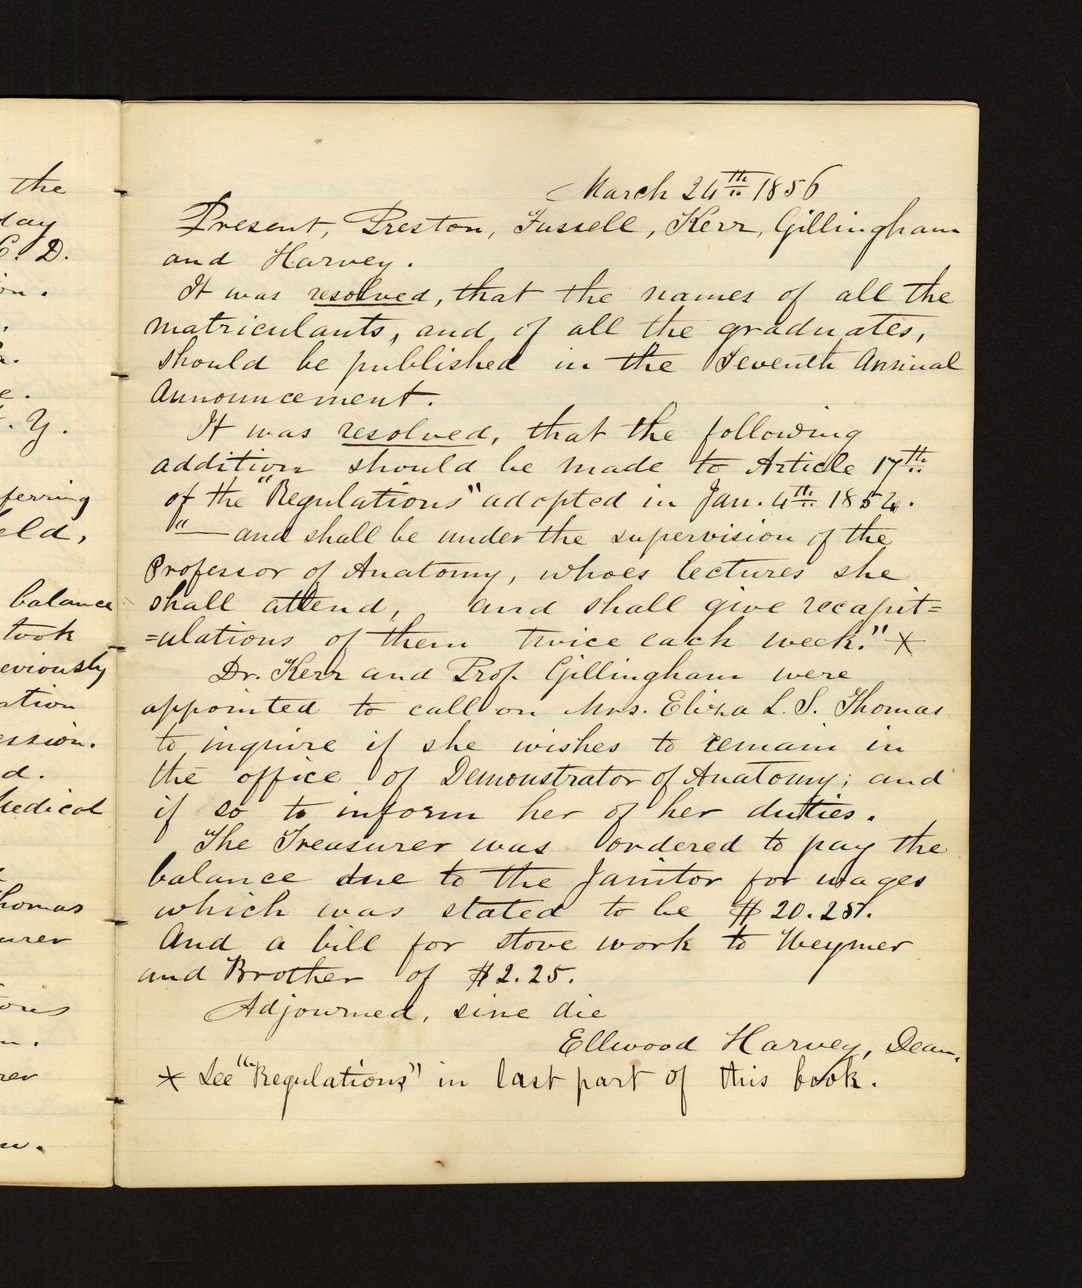 the
day
C. D.
on.
e.
. Y.
ferring
eld,
balance
took
eviously
ation
ession.
d.
Medical
homas
urer
ions
rer
March 24th 1856
Present, Preston, Fussell, Kerr, Gillingham
and Harvey.
It was resolved, that the names of all the
matriculants, and of all the graduates,
should be published in the Seventh Annual
Announcement.
It was resolved, that the following
addition should be made to Article 17th
of the "Regulations" adopted in Jan. 4th 1854.
"— and shall be under the supervision of the
Professor of Anatomy, whoes lectures she
shall attend, and shall give recapit=
=ulations of them twice each week." *
Dr. Kerr and Prof. Gillingham were
appointed to call on Mrs. Eliza L. S. Thomas
to inquire if she wishes to remain in
the office of Demonstrator of Anatomy; and
if so to inform her of her duties.
The Treasurer was ordered to pay the
balance due to the Janitor for wages
which was stated to be $20.25.
And a bill for stove work to Weymer
and Brother of $2.25.
Adjourned, sine die
Ellwood Harvey, Dean.
* See "the Regulations," in last part of this book.